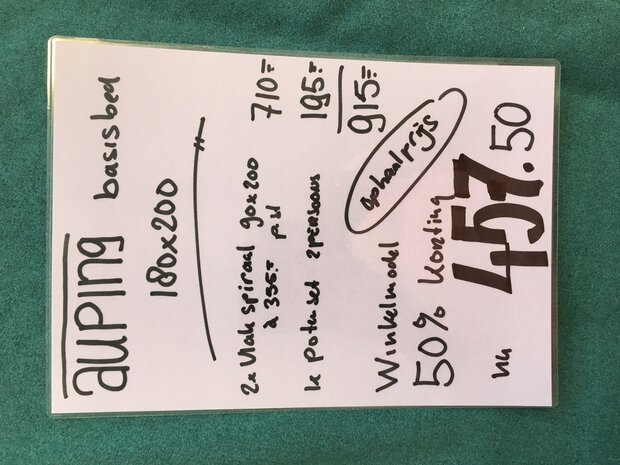 auping basisbed
180x200
2x Vlak spiraal 90x200 710:-
à 355:- p st
1x potenset 2persoons 195:-
915:-
Winkelmodel ophaalprijs
50% korting
nu 457.50